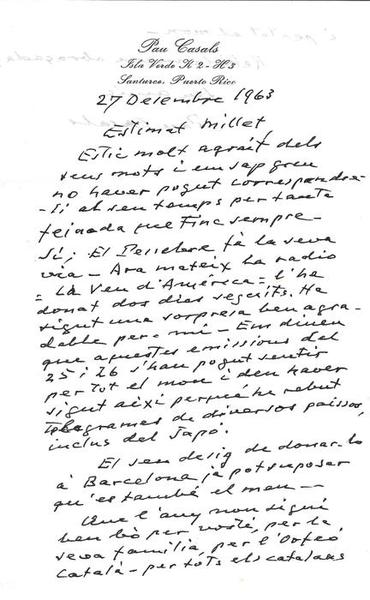 Pau Casals
Isla Verde K 2 - H 3
Santurce, Puerto Rico
27 Desembre 1963
Estimat Millet
Estic molt agrait dels
seus mots i em sap greu
no haver pogut correspondre-
-li al seu temps per tanta
feinada que tinc sempre-
Sí; El Pessebre fà la seva
via - Ara mateix la radio
= La Veu d'Amèrica = l'ha
donat dos dies seguits. Ha
sigut una sorpresa ben agra-
dable per a mi - Em diuen
que aquestes emissions del
25 i 26 s'han pogut sentir
per tot el mon i deu haver
sigut així perquè he rebut
telegrames de diversos paissos,
inclus del Japó.
El seu desig de donar-lo
à Barcelona ja pot suposar
qu'es també el meu -
Que l'any nou sigui
ben bò per vostè, per la
seva familia, per l'Orfeó
Català - per tots els catalans